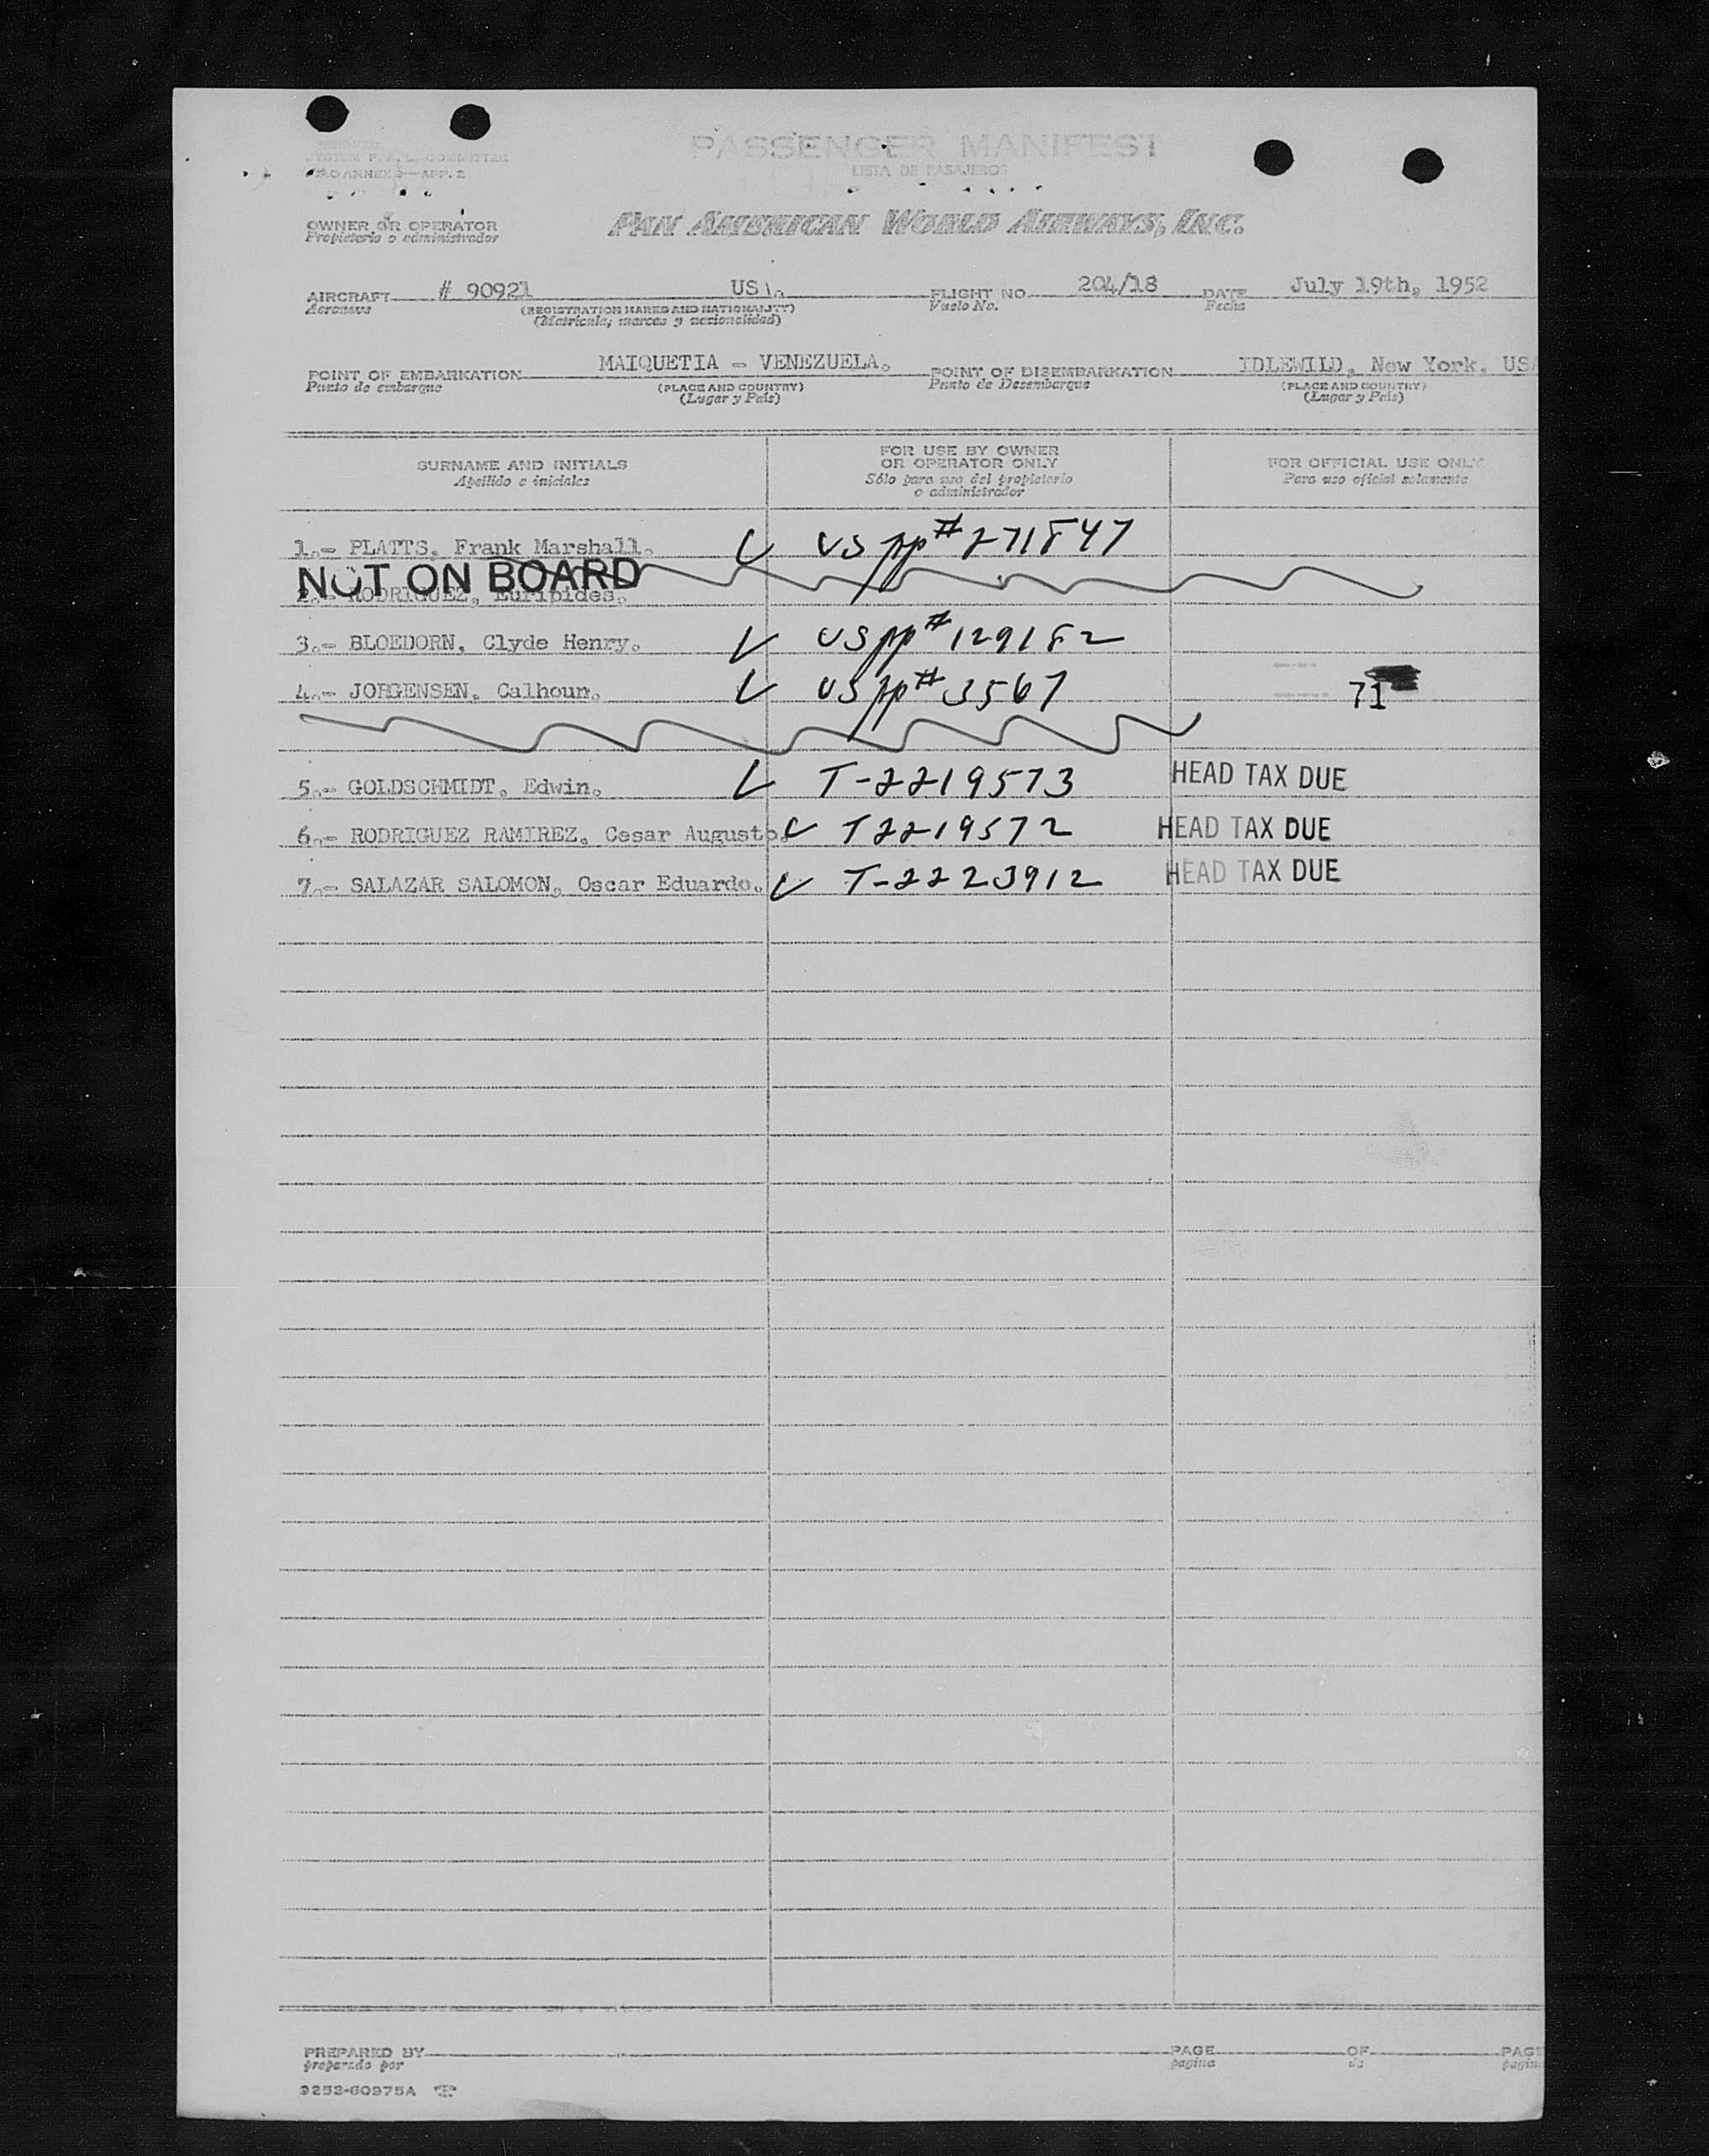 PASSENGER MANIFEST
LISTA DE PASAJEROS
SYSTEM F. A. L. COMMITTEE
ICAO ANNEX 9—APP. 2
OWNER OR OPERATOR
Propietario o administrador
PAN AMERICAN WORLD AIRWAYS, INC.
AIRCRAFT # 90921 USA. FLIGHT NO. 204/18 DATE July 19th, 1952
Aeronave (REGISTRATION MARKS AND NATIONALITY) Vuelo No. Fecha
(Matricula, marcas y nacionalidad)
POINT OF EMBARKATION MAIQUETIA - VENEZUELA. POINT OF DISEMBARKATION IDLEWILD, New York. USA
Punto de embarque (PLACE AND COUNTRY) Punto de Desembarque (PLACE AND COUNTRY)
(Lugar y País) (Lugar y País)
SURNAME AND INITIALS
Apellido e iniciales
FOR USE BY OWNER
OR OPERATOR ONLY
Sólo para uso del propietario
o administrador
FOR OFFICIAL USE ONLY
Para uso oficial solamente
1.- PLATTS, Frank Marshall. ✓ US pp # 271847
NOT ON BOARD
2.- RODRIGUEZ, Euripides.
3.- BLOEDORN, Clyde Henry. ✓ US pp # 129182
4.- JORGENSEN, Calhoun. ✓ US pp # 3567 71
5.- GOLDSCHMIDT, Edwin. ✓ T-2219573 HEAD TAX DUE
6.- RODRIGUEZ RAMIREZ, Cesar Augusto. ✓ T2219572 HEAD TAX DUE
7.- SALAZAR SALOMON, Oscar Eduardo. ✓ T-2223912 HEAD TAX DUE
PREPARED BY PAGE OF PAGE
preparado por pagina de pagina
9253-60975A